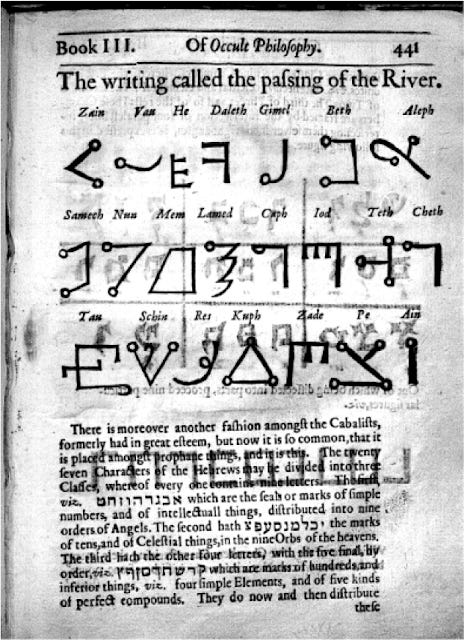 Book III. Of Occult Philoſophy. 441
The writing called the paſsing of the River.
Zain Vau He Daleth Gimel Beth Aleph
Samech Nun Mem Lamed Caph Iod Teth Cheth
Tau Schin Res Kuph Zade Pe Ain
There is moreover another faſhion amongſt the Cabaliſts,
formerly had in great eſteem, but now it is ſo common, that it
is placed amongſt prophane things, and it is this. The twenty
ſeven Characters of the Hebrews may be divided into three
Claſſes, whereof every one contains nine letters. The firſt,
viz. אבגדהוזחט which are the ſeals or marks of ſimple
numbers, and of intellectuall things, diſtributed into nine
orders of Angels. The ſecond hath יכלמנסעפצ, the marks
of tens, and of Celeſtial things, in the nine Orbs of the heavens.
The third hath the other four letters, with the five final, by
order, viz. קרשתךםןףץ which are marks of hundreds, and
inferior things, viz. four ſimple Elements, and of five kinds
of perfect compounds. They do now and then diſtribute
theſe